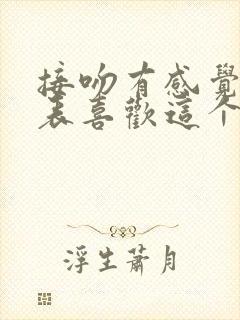 接吻有感覺
表喜歡這个
浮生蕭月